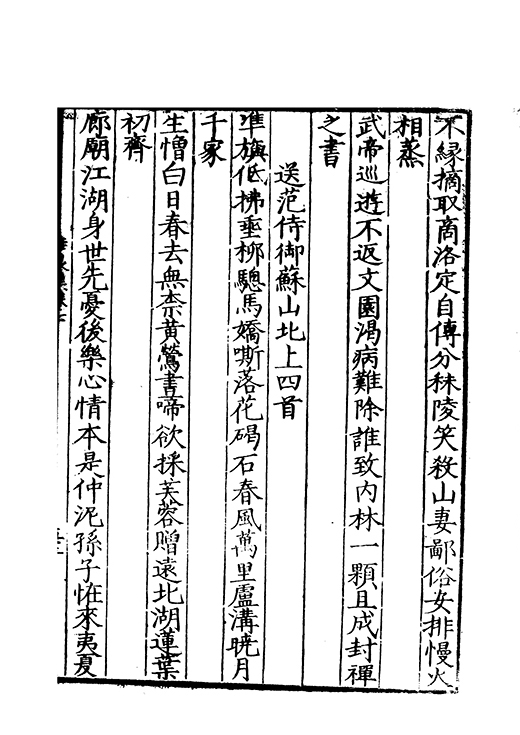 不緣摘取商洛定自傳分秣陵笑殺山妻鄙俗女排慢火
相蒸
武帝巡遊不返文園渴病難除誰致內林一顆且成封禪
之書
送范侍御蘇山北上四首
準旟低拂垂桺驄馬嬌嘶落花碣石春風萬里盧溝曉月
千家
生憎白日春去無柰黃鶯晝啼欲採芙蓉贈遠北湖蓮葉
初齊
廊廟江湖身世先憂後樂心情本是仲泥孫子恠來夷夏